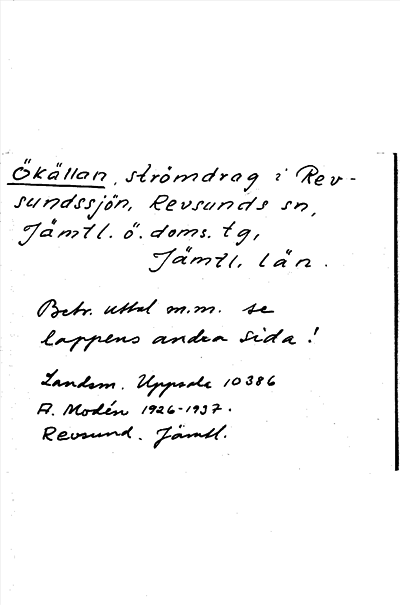 Ökällan, strömdrag i Rev-
sundssjön, Revsunds sn,
Jämtl. ö. doms. tg,
Jämtl. län.
Betr. uttal m.m. se
lappens andra sida!
Landsm. Uppsala 10386
A. Modén 1926-1937.
Revsund. Jämtl.